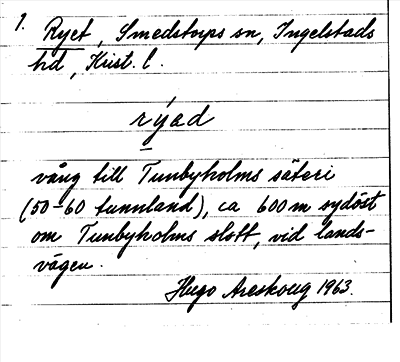 1. Ryet, Smedstorps sn, Ingelstads
hd, Krist. l.
rýad
vång till Tunbyholms säteri
(50-60 tunnland), ca 600 m sydöst
om Tunbyholms slott, vid lands-
vägen.
Hugo Areskoug 1963.